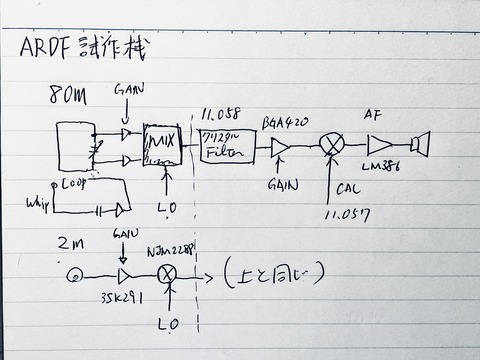 ARDF 試作機
80M
GAIN
MIX
11.058
クリスタル
Filter
BGA420
AF
LM386
GAIN
CAL
11.057
Loop
Whip
L.O
2m
GAIN
NJM2288
3SK291
L.O
(上と同じ)